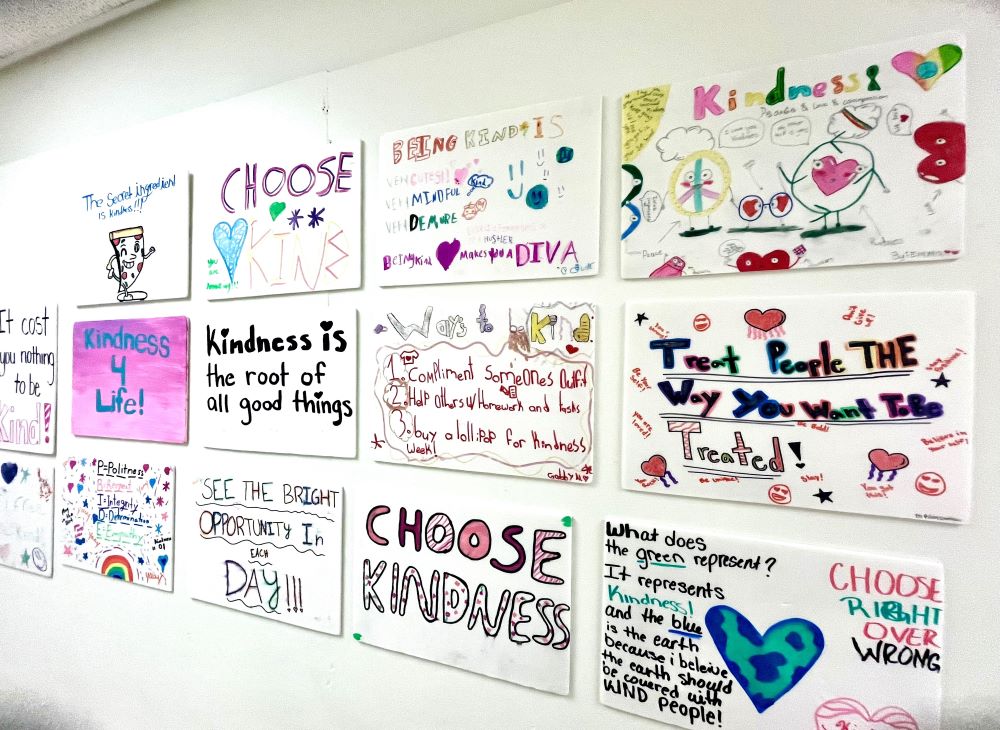 The Secret ingredient
is kindnes!!!
CHOOSE
KINE
You
are
BEING KIND IS
VERY CUTESY
VERY MINDFUL
Kind
VERY DEMURE
HUSTLER
BEING KIND MAKES YOU A DIVA
Kindness!
Peace & Love & compassion
Peace
It cost
you nothing
to be
Kind!
Kindness
4
Life!
Kindness is
the root of
all good things
Ways to Kind
1. Compliment SomeOnes Outfit
2. Help others w/Homework and tasks
3. buy a lollipop for Kindness
Week!
Treat People THE
Way You Want To Be
Treated!
Don't
Give
up!
Be Bold!
you are
loved!
Believe in
Your self!
Be unique!
Slay!
You got
this!
P=Politness
R=Respect
I=Integrity
D=Determination
E=Empathy
SEE THE BRIGHT
OPPORTUNITY In
EACH
DAY!!!
CHOOSE
KINDNESS
What does
the green represent?
It represents
Kindness!
and the blue
is the earth
because i beleive
the earth should
be covered with
KIND People!
CHOOSE
RIGHT
OVER
WRONG